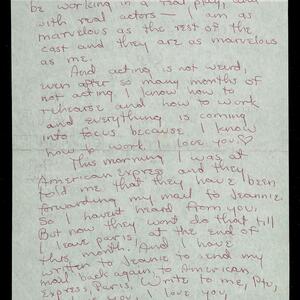 be working in a real play, and
with real actors — I am as
marvelous as the rest of the
cast and they are as marvelous
as me.
And acting is not weird,
even after so many months of
not acting I know how to
rehearse and how to work
and everything is coming
into focus because I know
how to work. I love you ♡
This morning I was at
American Express and they
told me that they have been
forwarding my mail to Jeannie.
So I havent heard from you.
But now they wont do that till
I leave Paris, at the end of
this month. And I have
written to Jeannie to send my
mail back again, to American
Express, Paris. Write to me,
you, I love you